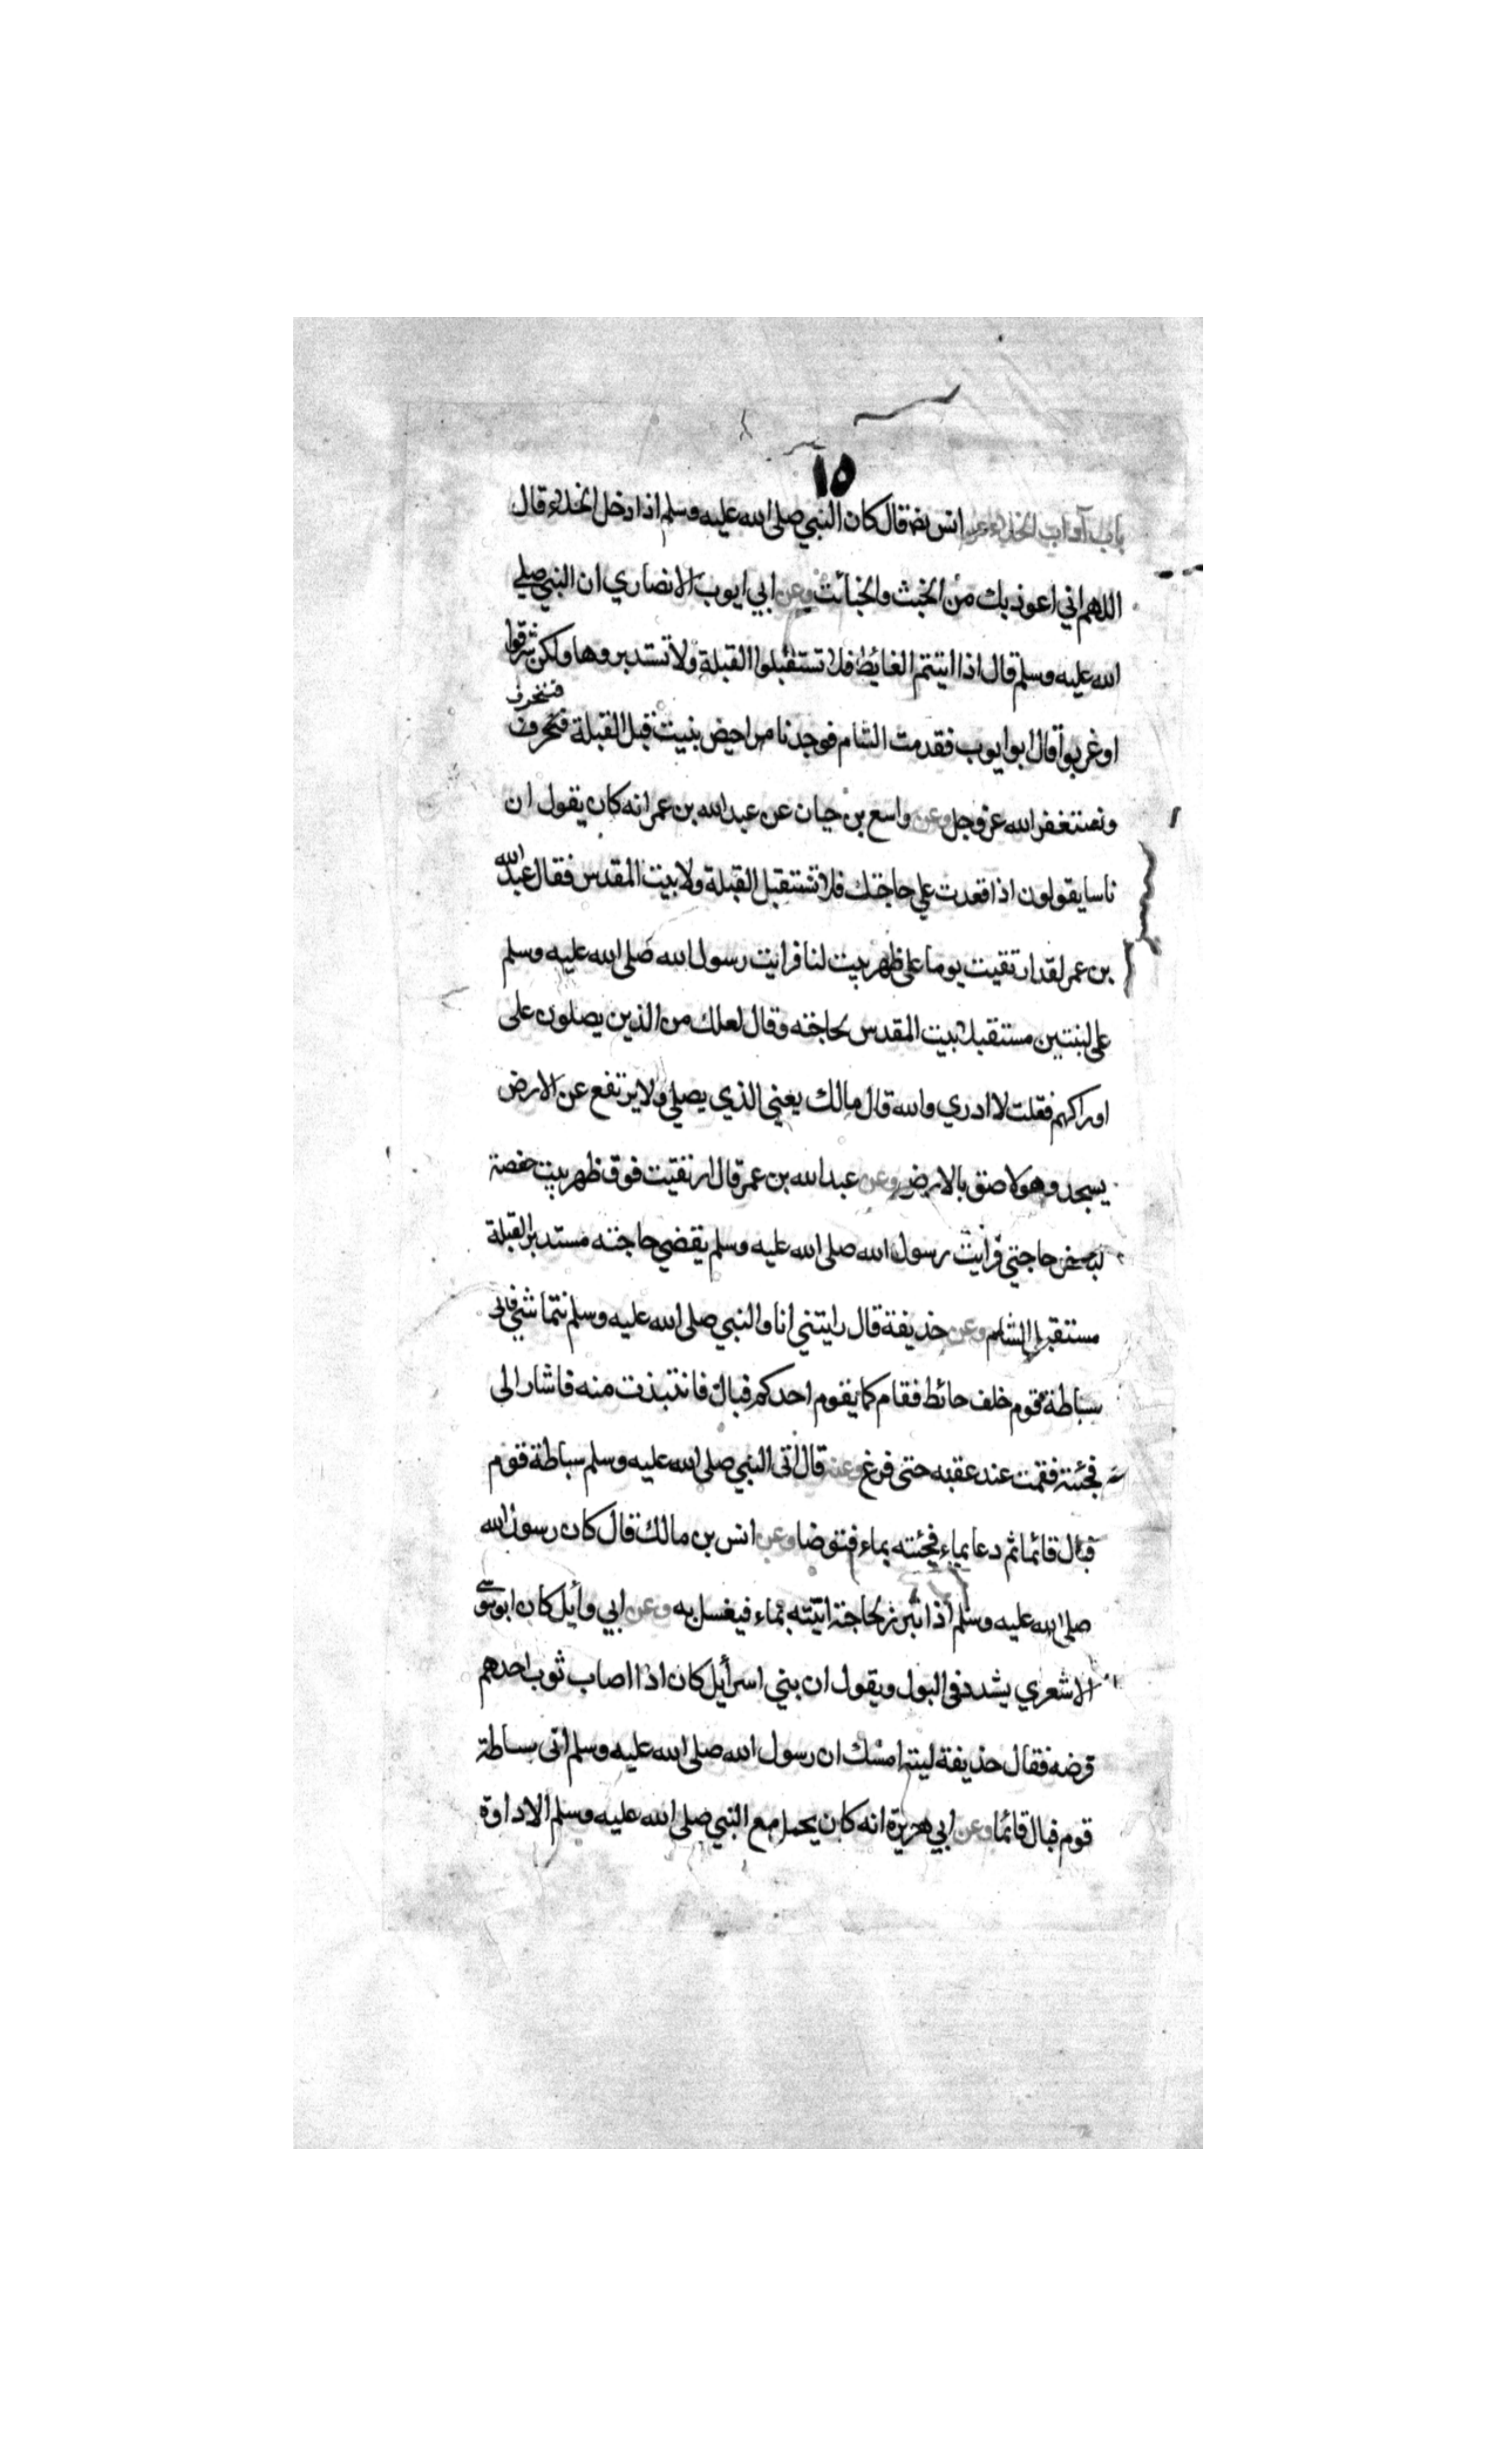 ١٥
باب آداب الخلاء عن انس رضه قال كان النبي صلى الله عليه وسلم اذا دخل الخلاء قال
اللهم اني اعوذ بك من الخبث والخبائث وعن ابي ايوب الانصاري ان النبي صلى
الله عليه وسلم قال اذا اتيتم الغائط فلا تستقبلوا القبلة ولا تستدبروها ولكن شرقوا
او غربوا قال ابو ايوب فقدمت الشام فوجدنا مراحيض بنيت قبل القبلة فنحرف
فننحرف
ونستغفر الله عز وجل وعن واسع بن حبان عن عبد الله بن عمر انه كان يقول ان
ناسا يقولون اذا قعدت على حاجتك فلا تستقبل القبلة ولا بيت المقدس فقال عبد الله
بن عمر لقد ارتقيت يوما على ظهر بيت لنا فرايت رسول الله صلى الله عليه وسلم
على لبنتين مستقبلا بيت المقدس لحاجته وقال لعلك من الذين يصلون على
اوراكهم فقلت لا ادري والله قال مالك يعني الذي يصلي ولا يرتفع عن الارض
يسجد وهو لاصق بالارض وعن عبد الله بن عمر قال ارتقيت فوق ظهر بيت حفصة
لبعض حاجتي فرايت رسول الله صلى الله عليه وسلم يقضي حاجته مستدبر القبلة
مستقبل الشام وعن حذيفة قال رايتني انا والنبي صلى الله عليه وسلم نتماشى فاتى
سباطة قوم خلف حائط فقام كما يقوم احدكم فبال فانتبذت منه فاشار الى
فجئته فقمت عند عقبه حتى فرغ وعنه قال اتى النبي صلى الله عليه وسلم سباطة قوم
فبال قائما ثم دعا بماء فجئته بماء فتوضا وعن انس بن مالك قال كان رسول الله
صلى الله عليه وسلم اذا تبرز لحاجة اتيته بماء فيغسل به وعن ابي وائل كان ابو موسى
الاشعري يشدد في البول ويقول ان بني اسرائيل كان اذا اصاب ثوب احدهم
قرضه فقال حذيفة ليته امسك ان رسول الله صلى الله عليه وسلم اتى سباطة
قوم فبال قائما وعن ابي هريرة انه كان يحمل مع النبي صلى الله عليه وسلم الاداوة